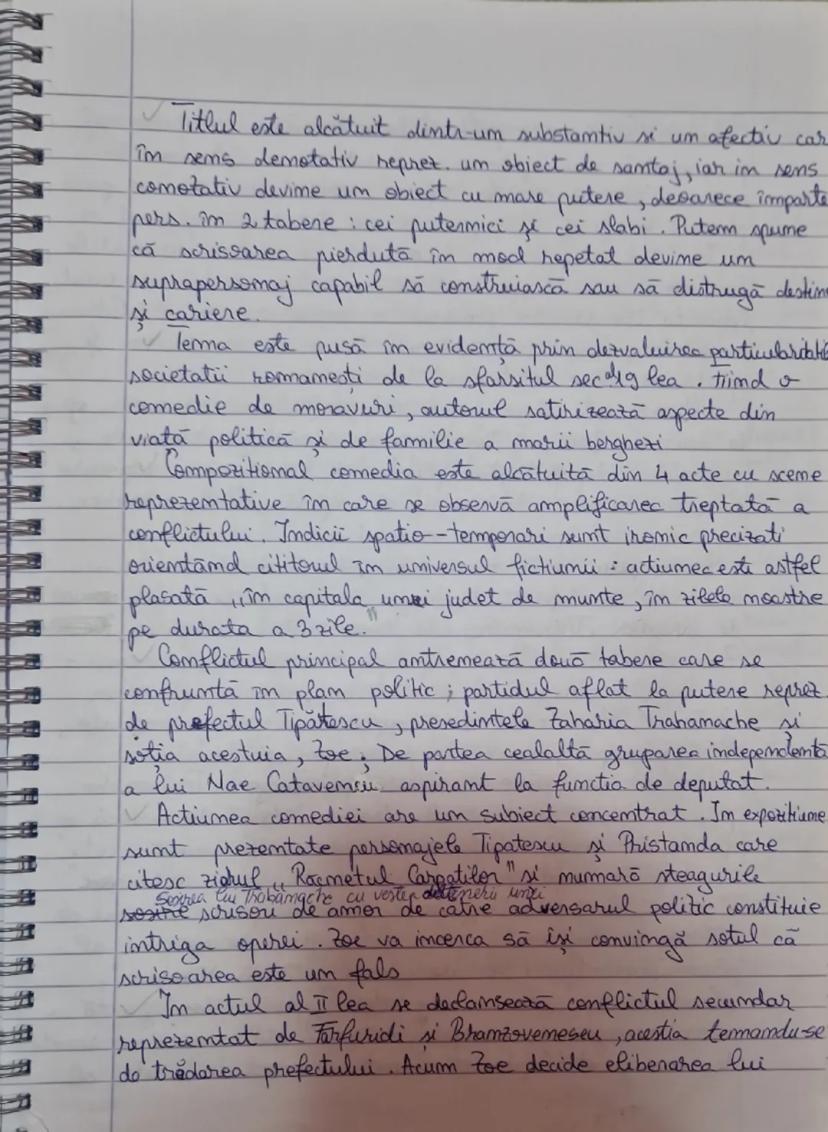 Titlul este alcătuit dintr-un substantiv si un afectiv car
în sens denotativ reprez. un obiect de santaj, iar in sens
conotativ devine un obiect cu mare putere, deoarece împarte
pers. în 2 tabere : cei puternici și cei slabi. Putem spune
că scrisoarea pierdută în mod repetat devine un
suprapersonaj capabil să construiască sau să distrugă destin
și cariere.
Tema este pusă în evidență prin dezvaluirea particularităti
societatii romanești de la sfarsitul sec. al 19 lea. Fiind o
comedie de moravuri, autorul satirizează aspecte din
viață politică și de familie a marii berghezi
Compozitional comedia este alcătuită din 4 acte cu scene
reprezentative în care se observă amplificarea treptată a
conflictului. Indicii spatio-temporari sunt ironic precizati
orientând cititorul în universul fictiunii : actiunea este astfel
plasată „în capitala unui judet de munte, în zilele noastre
pe durata a 3 zile."
Conflictul principal antrenează două tabere care se
confruntă în plan politic ; partidul aflat la putere reprez.
de prefectul Tipătescu, presedintele Zaharia Trahamache si
soția acestuia, Zoe ; De partea cealaltă gruparea independentă
a lui Nae Catavencu aspirant la functia de deputat.
Actiunea comediei are un subiect concentrat. In expozitiune
sunt prezentate personajele Tipatescu și Pristanda care
citesc ziarul „Racnetul Carpatilor" si numară steagurile
Sosirea lui Trahamache cu vestea detinerii unei
scrisori de amor de către adversarul politic constituie
intriga operei. Zoe va incerca să își convingă sotul că
scrisoarea este un fals
In actul al II lea se declansează conflictul secundar
reprezentat de Farfuridi și Branzovenescu, acestia temandu-se
de trădarea prefectului. Acum Zoe decide eliberarea lui